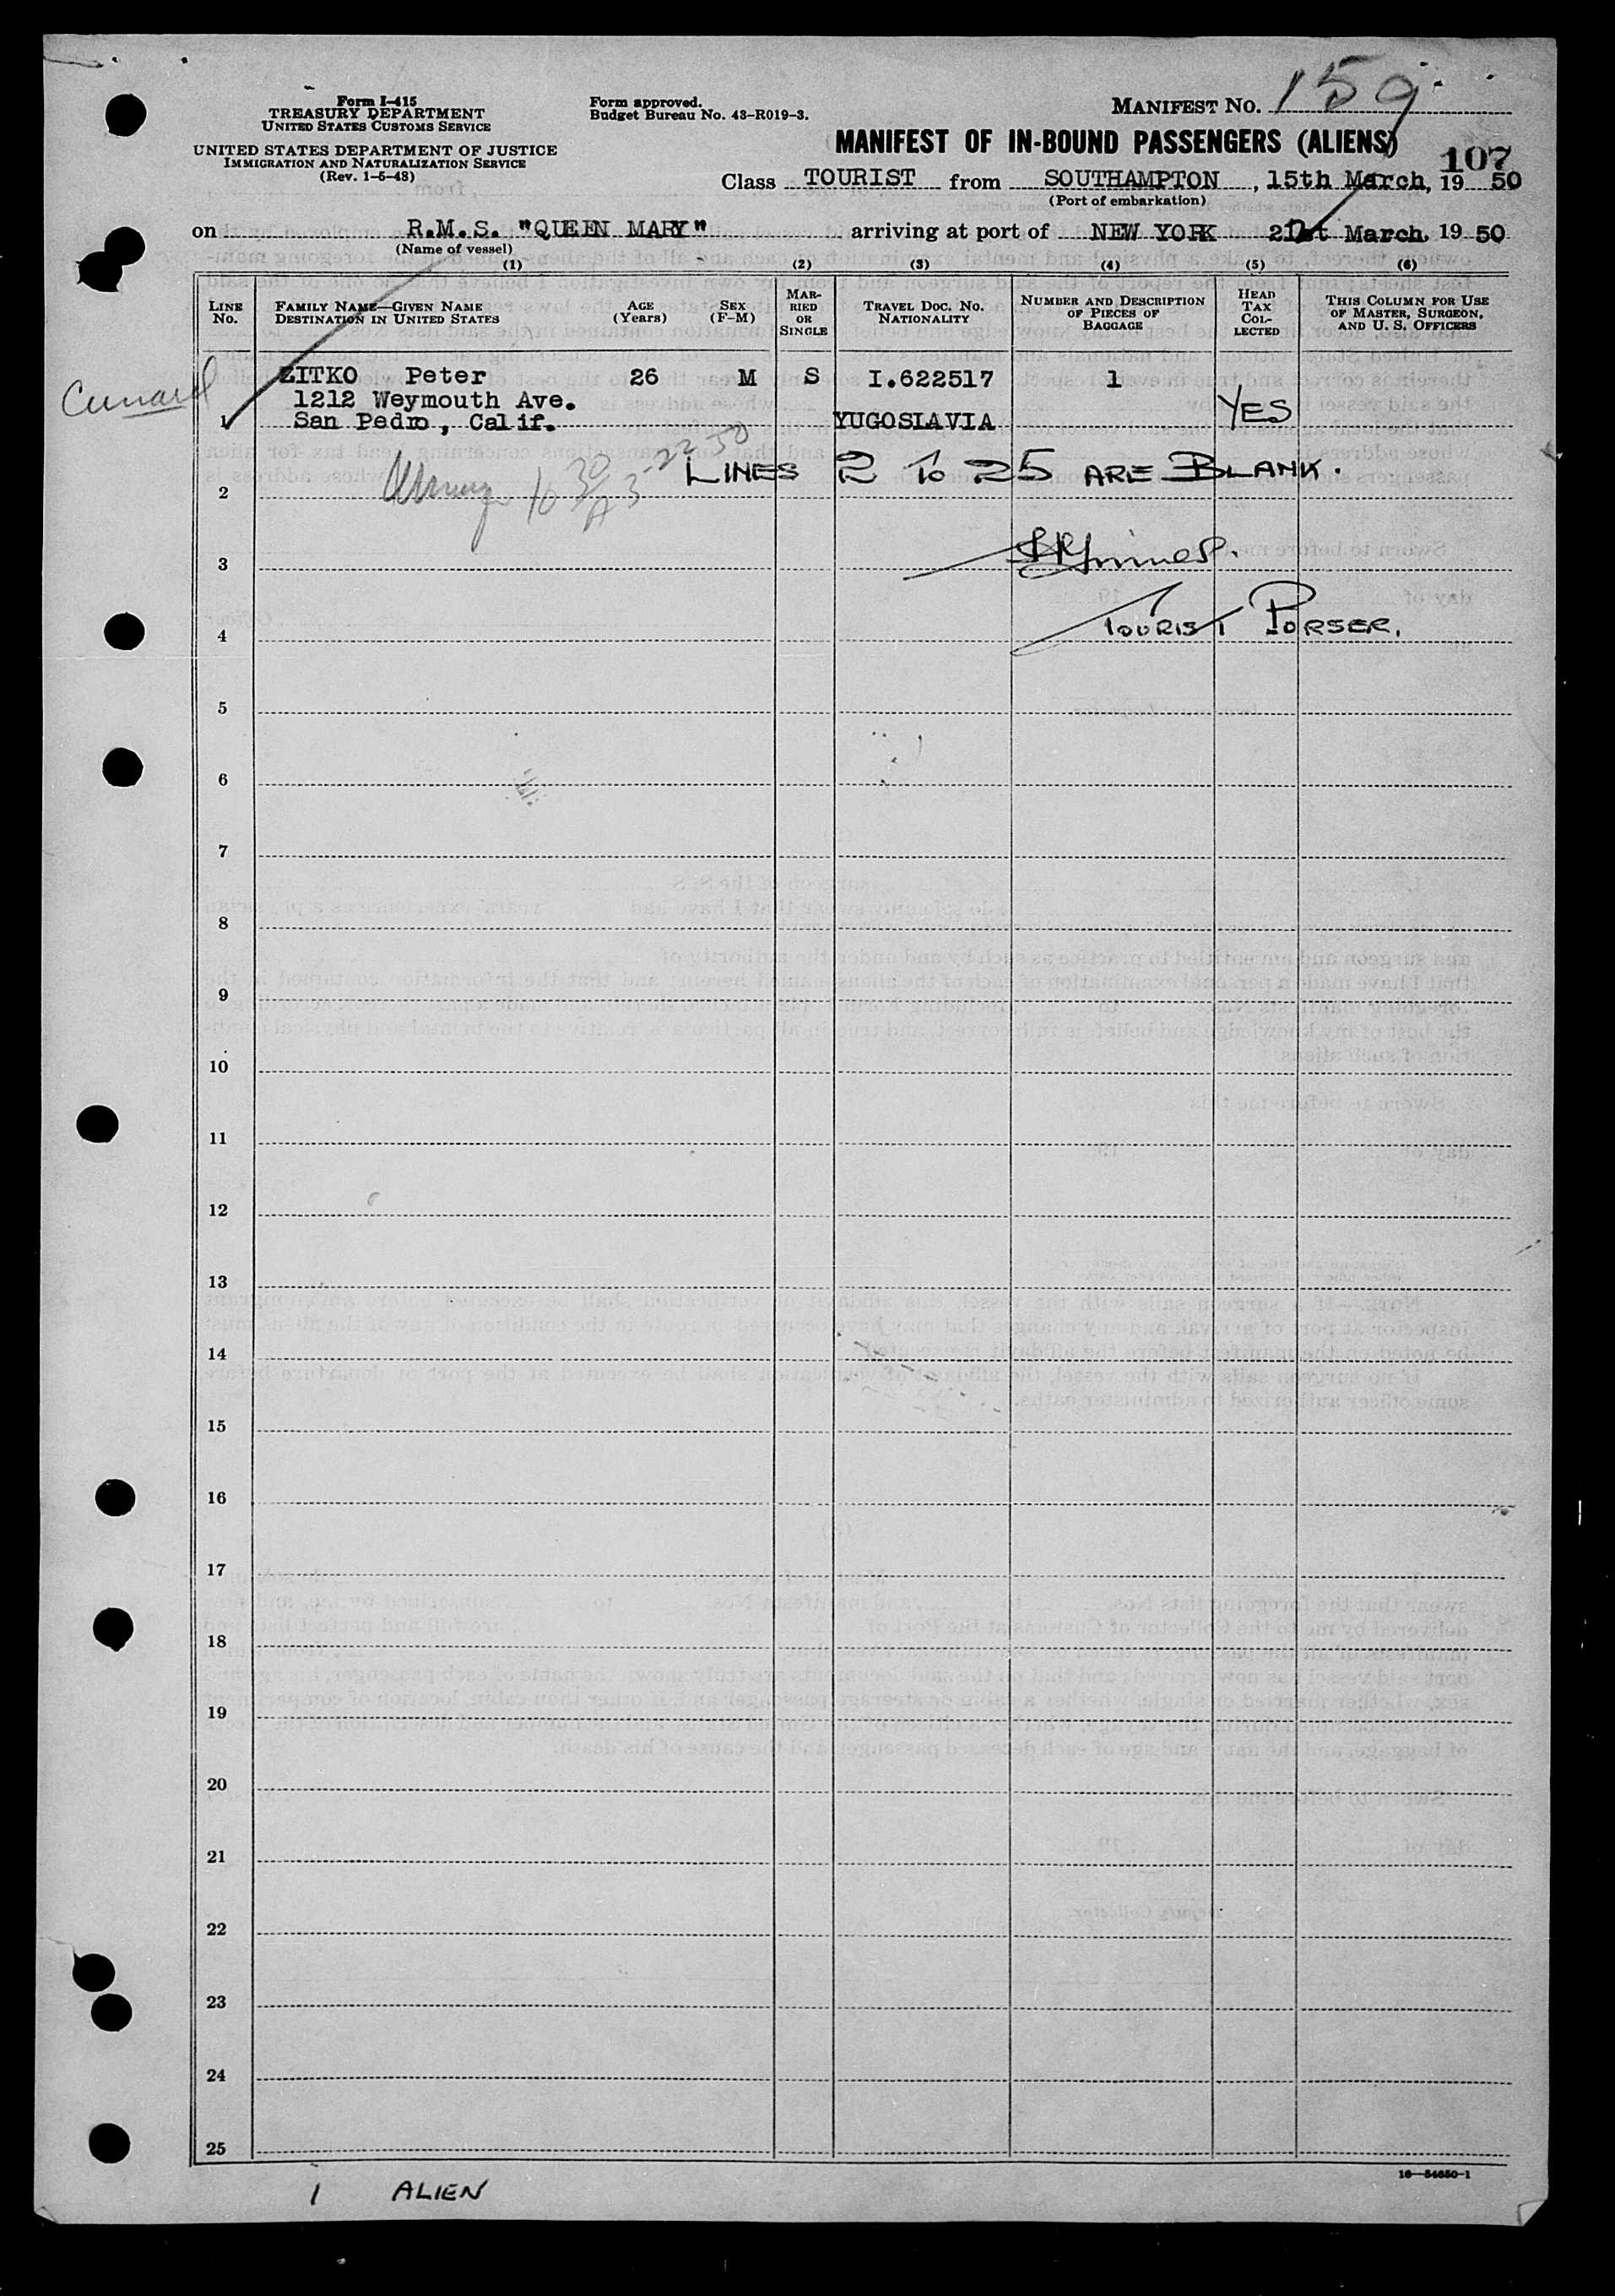 Form I-415
TREASURY DEPARTMENT
UNITED STATES CUSTOMS SERVICE
UNITED STATES DEPARTMENT OF JUSTICE
IMMIGRATION AND NATURALIZATION SERVICE
(Rev. 1-5-48)
Form approved.
Budget Bureau No. 43-R019-3.
MANIFEST NO. 159
MANIFEST OF IN-BOUND PASSENGERS (ALIENS)
107
Class TOURIST from SOUTHAMPTON, 15th March, 19 50
(Port of embarkation)
on R.M.S. "QUEEN MARY" arriving at port of NEW YORK March, 19 50
(Name of vessel)
(1) (2) (3) (4) (5) (6)
LINE No. FAMILY NAME—GIVEN NAME DESTINATION IN UNITED STATES AGE (Years) SEX (F-M) MARRIED OR SINGLE TRAVEL DOC. NO. NATIONALITY NUMBER AND DESCRIPTION OF PIECES OF BAGGAGE HEAD TAX COLLECTED THIS COLUMN FOR USE OF MASTER, SURGEON, AND U. S. OFFICERS
Cunard
ZITKO Peter 26 M S I.622517 1
1212 Weymouth Ave.
1 San Pedro, Calif. YUGOSLAVIA YES
LINES 2 TO 25 ARE BLANK.
2
3
TOURIST PURSER.
4
5
6
7
8
9
10
11
12
13
14
15
16
17
18
19
20
21
22
23
24
25
16—54650-1
1 ALIEN